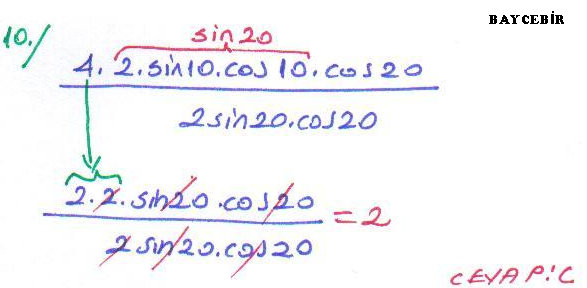 BAYCEBİR
10./
sin20
4. 2.sin10.cos10.cos20
2sin20.cos20
2.2.sin20.cos20
2sin20.cos20
=2
CEVAP:C